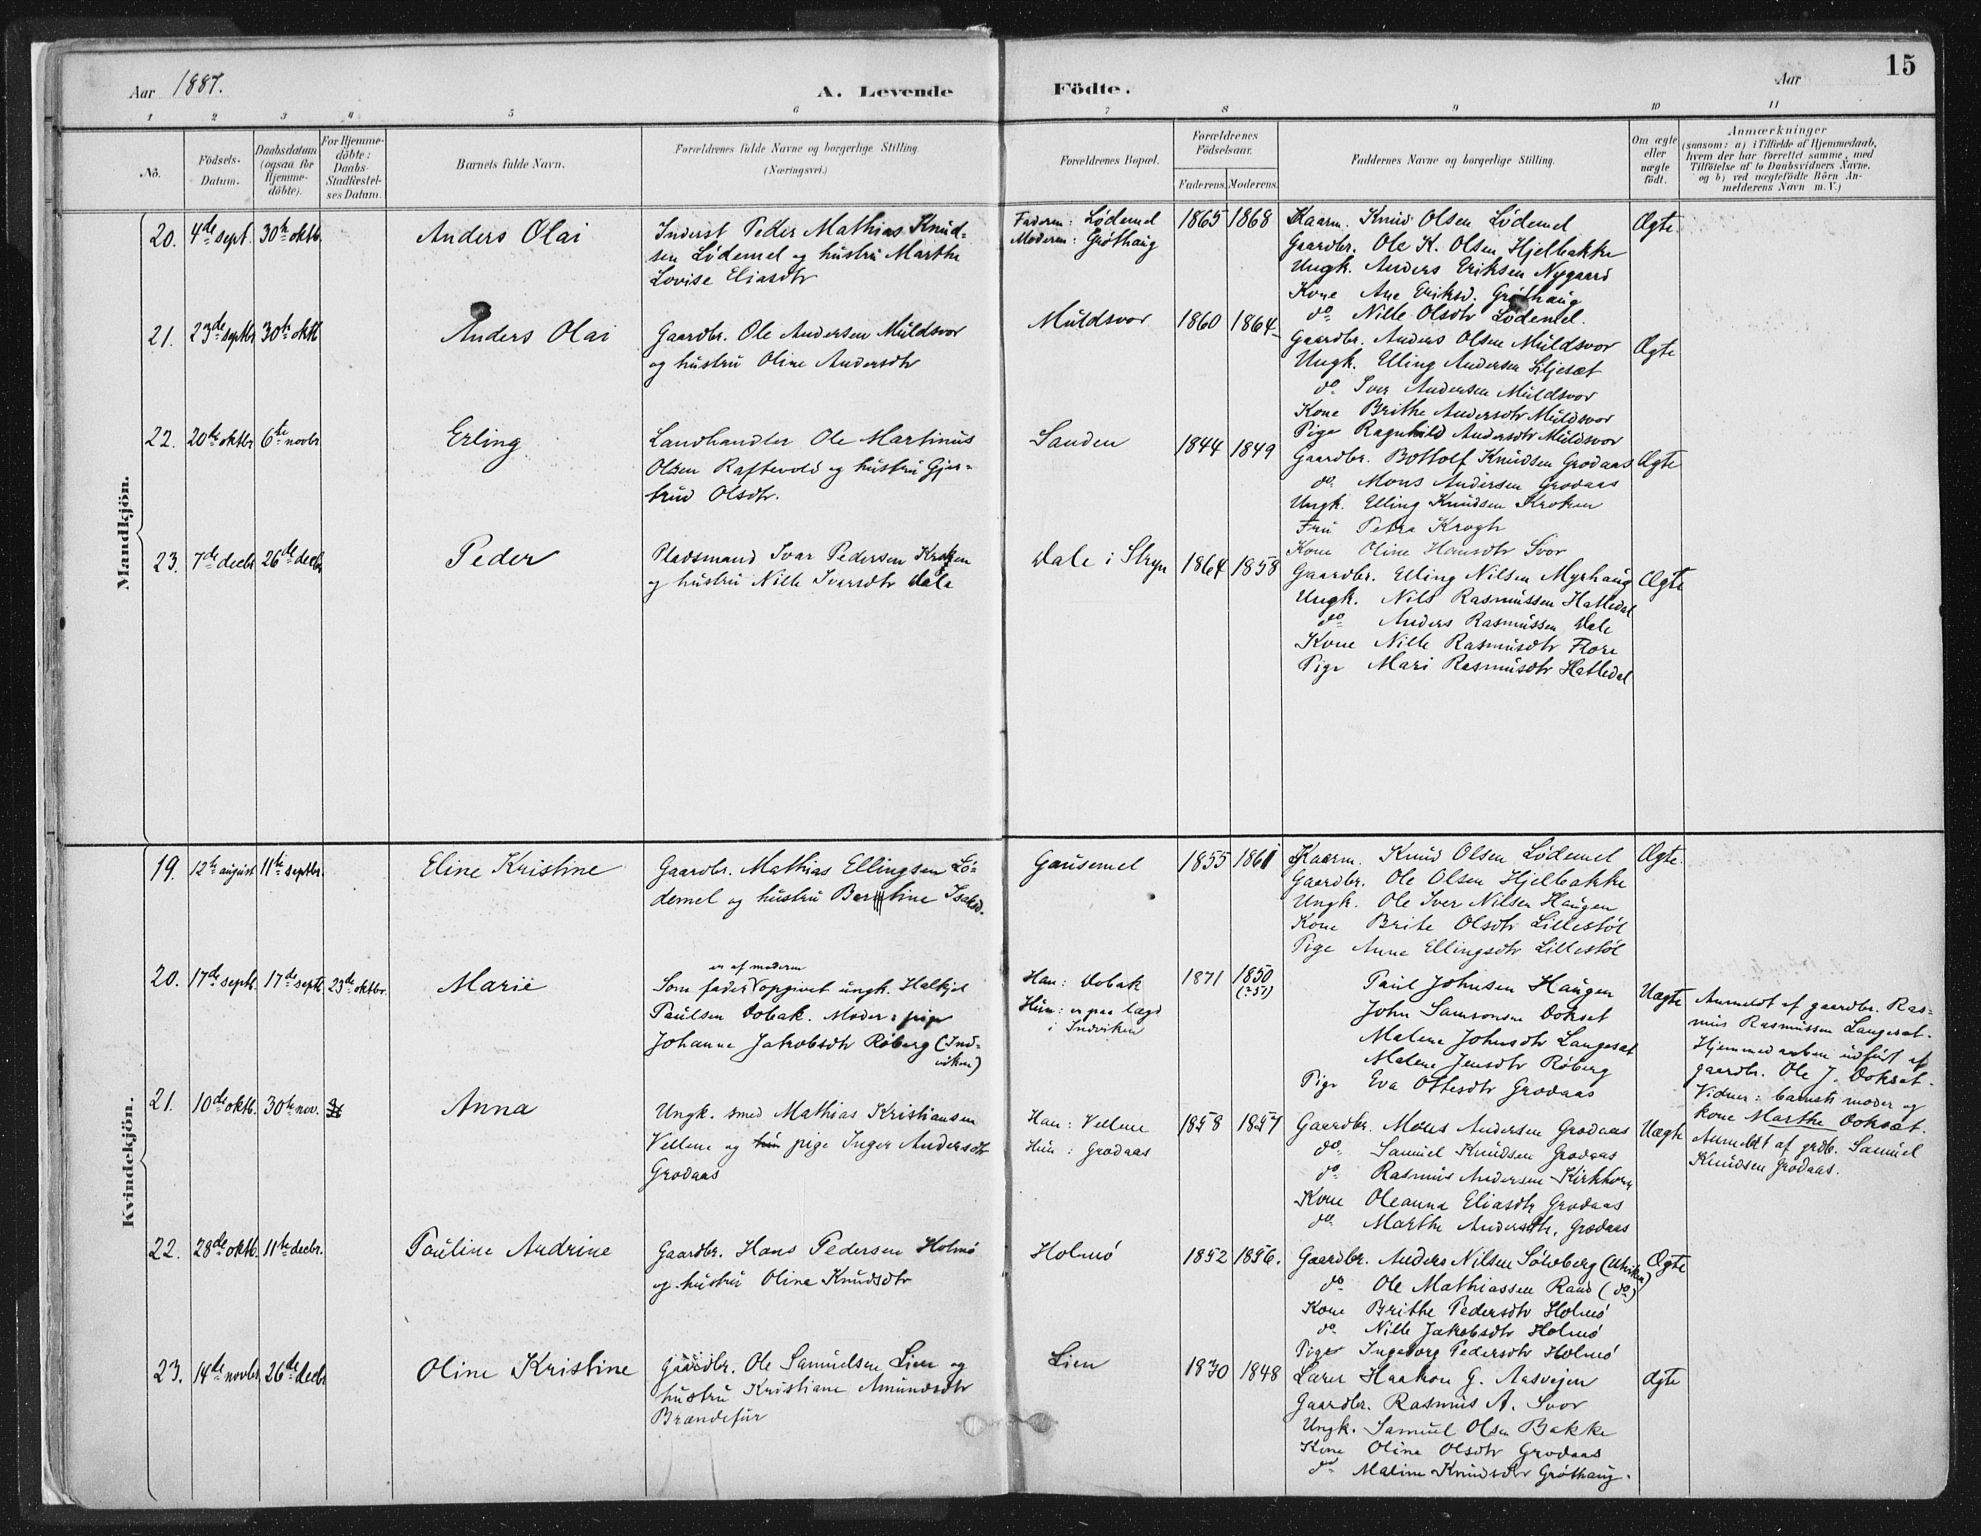 Aar 1887.
A. Levende Födte.
Aar
15
1 2 3 4 5 6 7 8 9 10 11
No.
Födsels-Datum.
Daabsdatum (ogsaa for Hjemme-döbte).
For Hjemme-döbte: Daabs-Stadfæstel-ses Datum.
Barnets fulde Navn.
Forældrenes fulde Navne og borgerlige Stilling. (Næringsvei.)
Forældrenes Bopæl.
Forældrenes Födselsaar.
Faderens. Moderens.
Faddernes Navne og borgerlige Stilling.
Om ægte eller uægte födt.
Anmærkninger
(saasom: a) i Tilfælde af Hjemmedaab,
hvem der har forrettet samme, med
Tilföielse af to Daabsvidners Navne.
og b) ved uægtefödte Börn An-
melderens Navn m. V.)
Mandkjön.
20. 4de sept. 30te oktb. Anders Olai
Inderst Peder Mathias Knud-
sen Lødemel og hustru Marthe
Lovise Eliasdtr
Faderen: Lødemel
Moderen: Grøthaug
1865 1868
Kaarm. Knud Olsen Lødemel
Gaardbr. Ole K. Olsen Hjelbakke
Ungk. Anders Eriksen Nygaard
Kone Ane Eriksd. Grøthaug
do Nille Olsdtr Lødemel.
Ægte
21. 23de septbr 30te oktb Anders Olai
Gaardbr. Ole Andersen Muldsvor
og hustru Oline Andersdtr
Muldsvor
1860 1864
Gaardbr. Anders Olsen Muldsvor
Ungk. Elling Andersen Liljesæt
do Iver Andersen Muldsvor
Kone Brithe Andersdtr Muldsvor
Pige Ragnhild Andersdtr Muldsvor
Ægte
22. 20te oktbr 6te novbr Erling
Landhandler Ole Martinus
Olsen Raftevold og hustru Gjer-
trud Olsdtr.
Sanden
1844 1849
Gaardbr. Bottolf Knudsen Grodaas
do Mons Andersen Grodaas
Ungk. Elling Knudsen Kroken
Fru Petra Krogh
Kone Oline Hansdtr Svor
Ægte
23. 7de decbr 26de decbr Peder
Pladsmand Ivar Pedersen Kroken
og hustru Nille Ivarsdtr Dale
Dale i Stryn
1864 1858
Gaardbr. Elling Nilsen Myrhaug
Ungk. Nils Rasmussen Hatledal
do Anders Rasmussen Dale
Kone Nille Rasmusdtr Flore
Pige Mari Rasmusdtr Hatledal
Ægte
Kvindekjön.
19. 12te august 11te septbr. Eline Kristine
Gaardbr. Mathias Ellingsen Lø-
demel og hustru Bertine Isaksd.
Gausemel
1855 1861
Kaarm. Knud Olsen Lødemel
Gaardbr. Ole Olsen Hjelbakke
Ungk. Ole Iver Nilsen Haugen
Kone Brite Olsdtr Lillestøl
Pige Anne Ellingsdtr Lillestøl
Ægte.
20. 17de septb. 17de septb 23de oktbr. Marie
er af moderen
Som fader opgivet ungk. Halkjel
Paulsen Dobak. Moder: pige
Johanne Jakobsdtr Røberg (Ind-
viken)
Han: Dobak
Hun: er paa lægd
i Indviken
1871 1850
(? 51)
Paul Johnsen Haugen
John Samsonsen Dokset
Malene Johnsdtr Langesæt
Malene Jensdtr Røberg
Pige Eva Ottesdtr Grodaas
Uægte
Anmeldt af gaardbr. Ras-
mus Rasmussen Langesæt.
Hjemmedaaben udført af
gaardbr. Ole J. Dokset.
Vidner: barnets moder og
kone Marthe Dokset.
21. 10de oktb. 30te nov. Anna
Ungk. smed Mathias Kristiansen
Vellene og hun pige Inger Andersdtr
Grodaas
Han: Vellene
Hun: Grodaas
1858 1857
Gaardbr. Mons Andersen Grodaas
do Samuel Knudsen Grodaas
do Rasmus Andersen Kirkhorn
Kone Oleanna Eliasdtr Grodaas
do Marthe Andersdtr, Grodaas
Uægte
Anmeldt af grdb. Samuel
Knudsen Grodaas.
22. 28de oktb. 11te decbr. Pauline Andrine
Gaardbr. Hans Pedersen Holmø
og hustru Oline Knudsdtr
Holmø
1852 1856.
Gaardbr. Anders Nilsen Sølvberg (Utviken)
do Ole Mathiassen Rand (do)
Kone Brithe Pedersdtr Holmø
do Nille Jakobsdtr Holmø
Pige Ingeborg Pedersdtr Holmø
Ægte
23. 14de novbr 26de decbr Oline Kristine
Gaardbr. Ole Samuelsen Lien og
hustru Kristiane Amundsdtr
Brændefur
Lien
1830 1848
Lærer Haakon G. Aasvejen
Gaardbr. Rasmus A. Svor
Ungk. Samuel Olsen Bakke
Kone Oline Olsdtr Grodaas
do Maline Knudsdtr Grøthaug.
Ægte